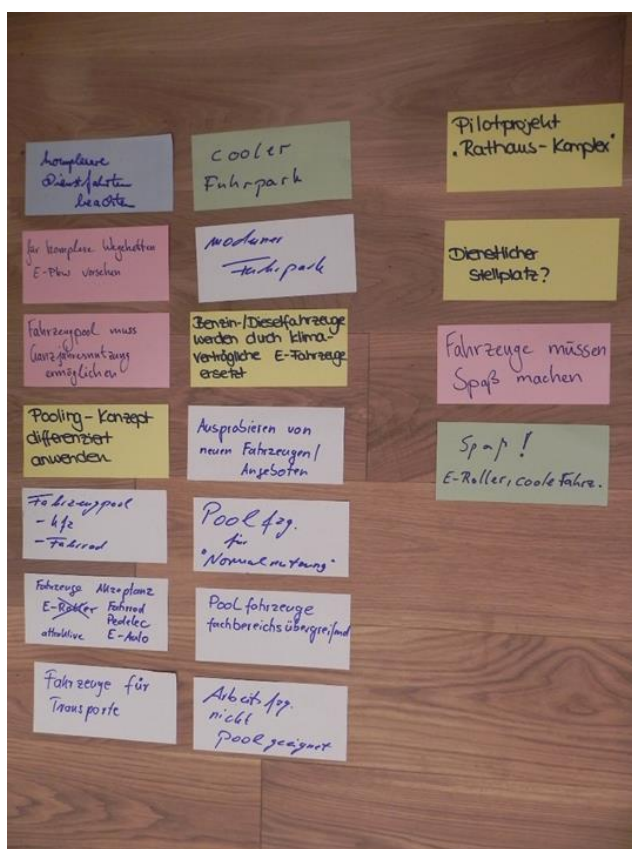 komplexe
Dienstfahrten
beachten
für komplexe Wegeketten
E-Pkw vorsehen
Fahrzeugpool muss
Ganzjahresnutzung
ermöglichen
Pooling-Konzept
differenziert
anwenden
Fahrzeugpool
- Kfz
- Fahrrad
Fahrzeuge Akzeptanz
E-Roller Fahrrad
Pedelec
attraktive E-Auto
Fahrzeuge für
Transporte
cooler
Fuhrpark
moderner
Fuhrpark
Benzin-/Dieselfahrzeuge
werden duch klima-
verträgliche E-Fahrzeuge
ersetzt
Ausprobieren von
neuen Fahrzeugen/
Angeboten
Poolfzg.
für
"Normalnutzung"
Poolfahrzeuge
fachbereichsübergreifend
Arbeitsfzg.
nicht
Poolgeeignet
Pilotprojekt
"Rathaus-Komplex"
Dienstlicher
Stellplatz?
Fahrzeuge müssen
Spaß machen
Spaß!
E-Roller, coole Fahrz.